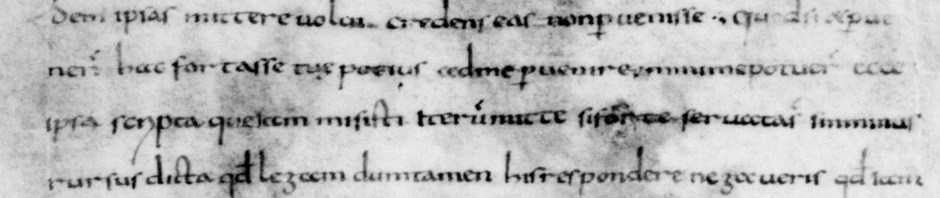 dem ipsas mittere volui credens eas non puenisse ·, Quodsi & pue
ner̃ hae fortasse tuę potius ad me puenire minime potuer̃ ecce
ipsa scripta que iam misisti iterũ mitte si forte servatas sinminus
rursus dicta qđ legam dum tamen his respondere ne gaveris qđ iam